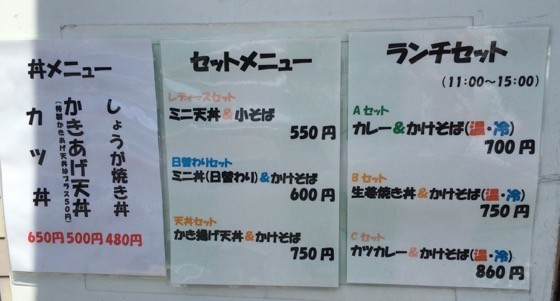 丼メニュー
カツ丼
かきあげ天丼
(特製かきあげ天丼はプラス50円)
しょうが焼き丼
650円 500円 480円
セットメニュー
レディースセット
ミニ天丼&小そば
550円
日替わりセット
ミニ丼(日替わり)&かけそば
600円
天丼セット
かき揚げ天丼&かけそば
750円
ランチセット
(11:00～15:00)
Aセット
カレー&かけそば(温・冷)
700円
Bセット
生姜焼き丼&かけそば(温・冷)
750円
Cセット
カツカレー&かけそば(温・冷)
860円